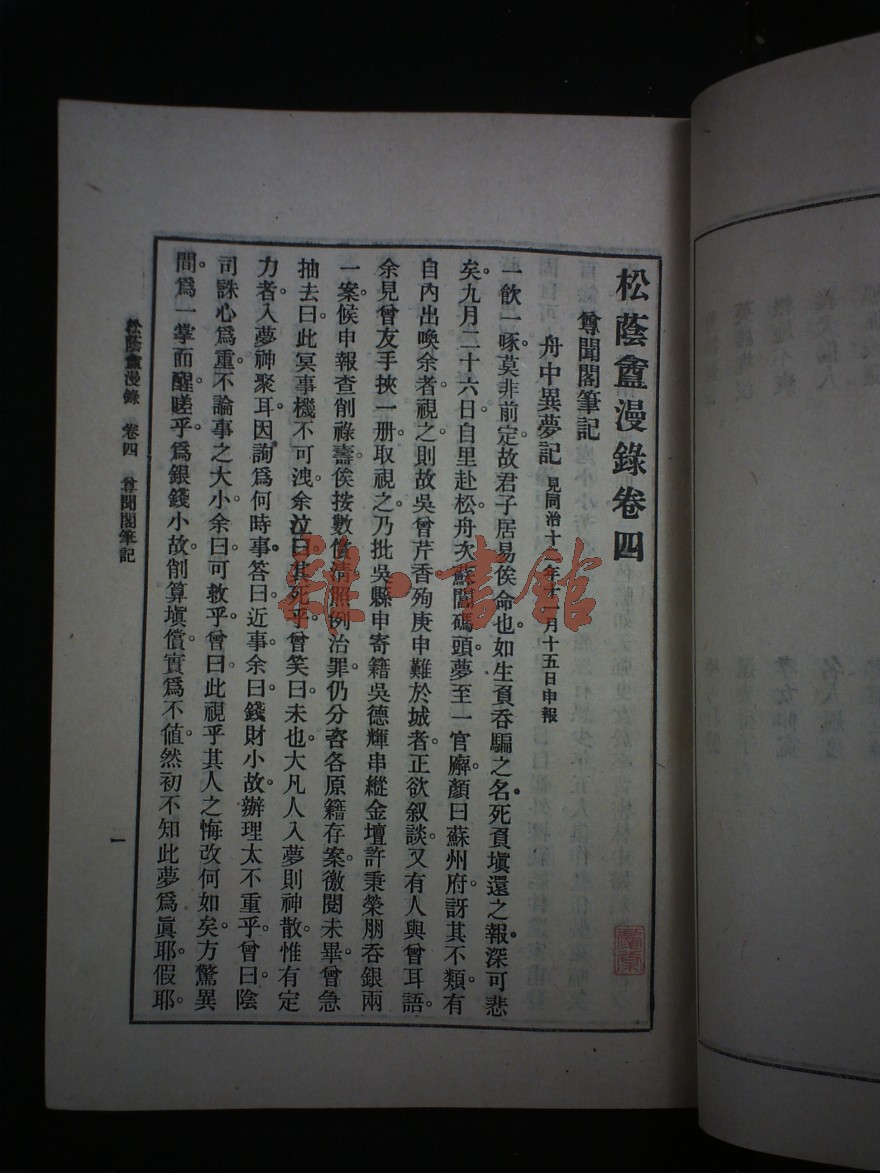 松蔭盦漫錄卷四
尊聞閣筆記
舟中異夢記 見同治十一年十一月十五日申報
一飲一啄莫非前定故君子居易俟命也如生負吞騙之名死負塡還之報深可悲
矣九月二十六日自里赴松舟次蘇閶碼頭夢至一官廨顏曰蘇州府訝其不類有
自內出喚余者視之則故吳曾芹香殉庚申難於城者正欲叙談又有人與曾耳語
余見曾友手挾一册取視之乃批吳縣申寄籍吳德輝串縱金壇許秉榮朋吞銀兩
一案候申報查削祿壽俟按數償清照例治罪仍分咨各原籍存案微閱未畢曾急
抽去曰此冥事機不可洩余泣曰其死乎曾笑曰未也大凡人入夢則神散惟有定
力者入夢神聚耳因詢爲何時事答曰近事余曰錢財小故辦理太不重乎曾曰陰
司誅心爲重不論事之大小余曰可救乎曾曰此視乎其人之悔改何如矣方驚異
間爲一掌而醒嗟乎爲銀錢小故削算塡償實爲不値然初不知此夢爲眞耶假耶
松蔭盦漫錄 卷四 尊聞閣筆記
一
雜·書館